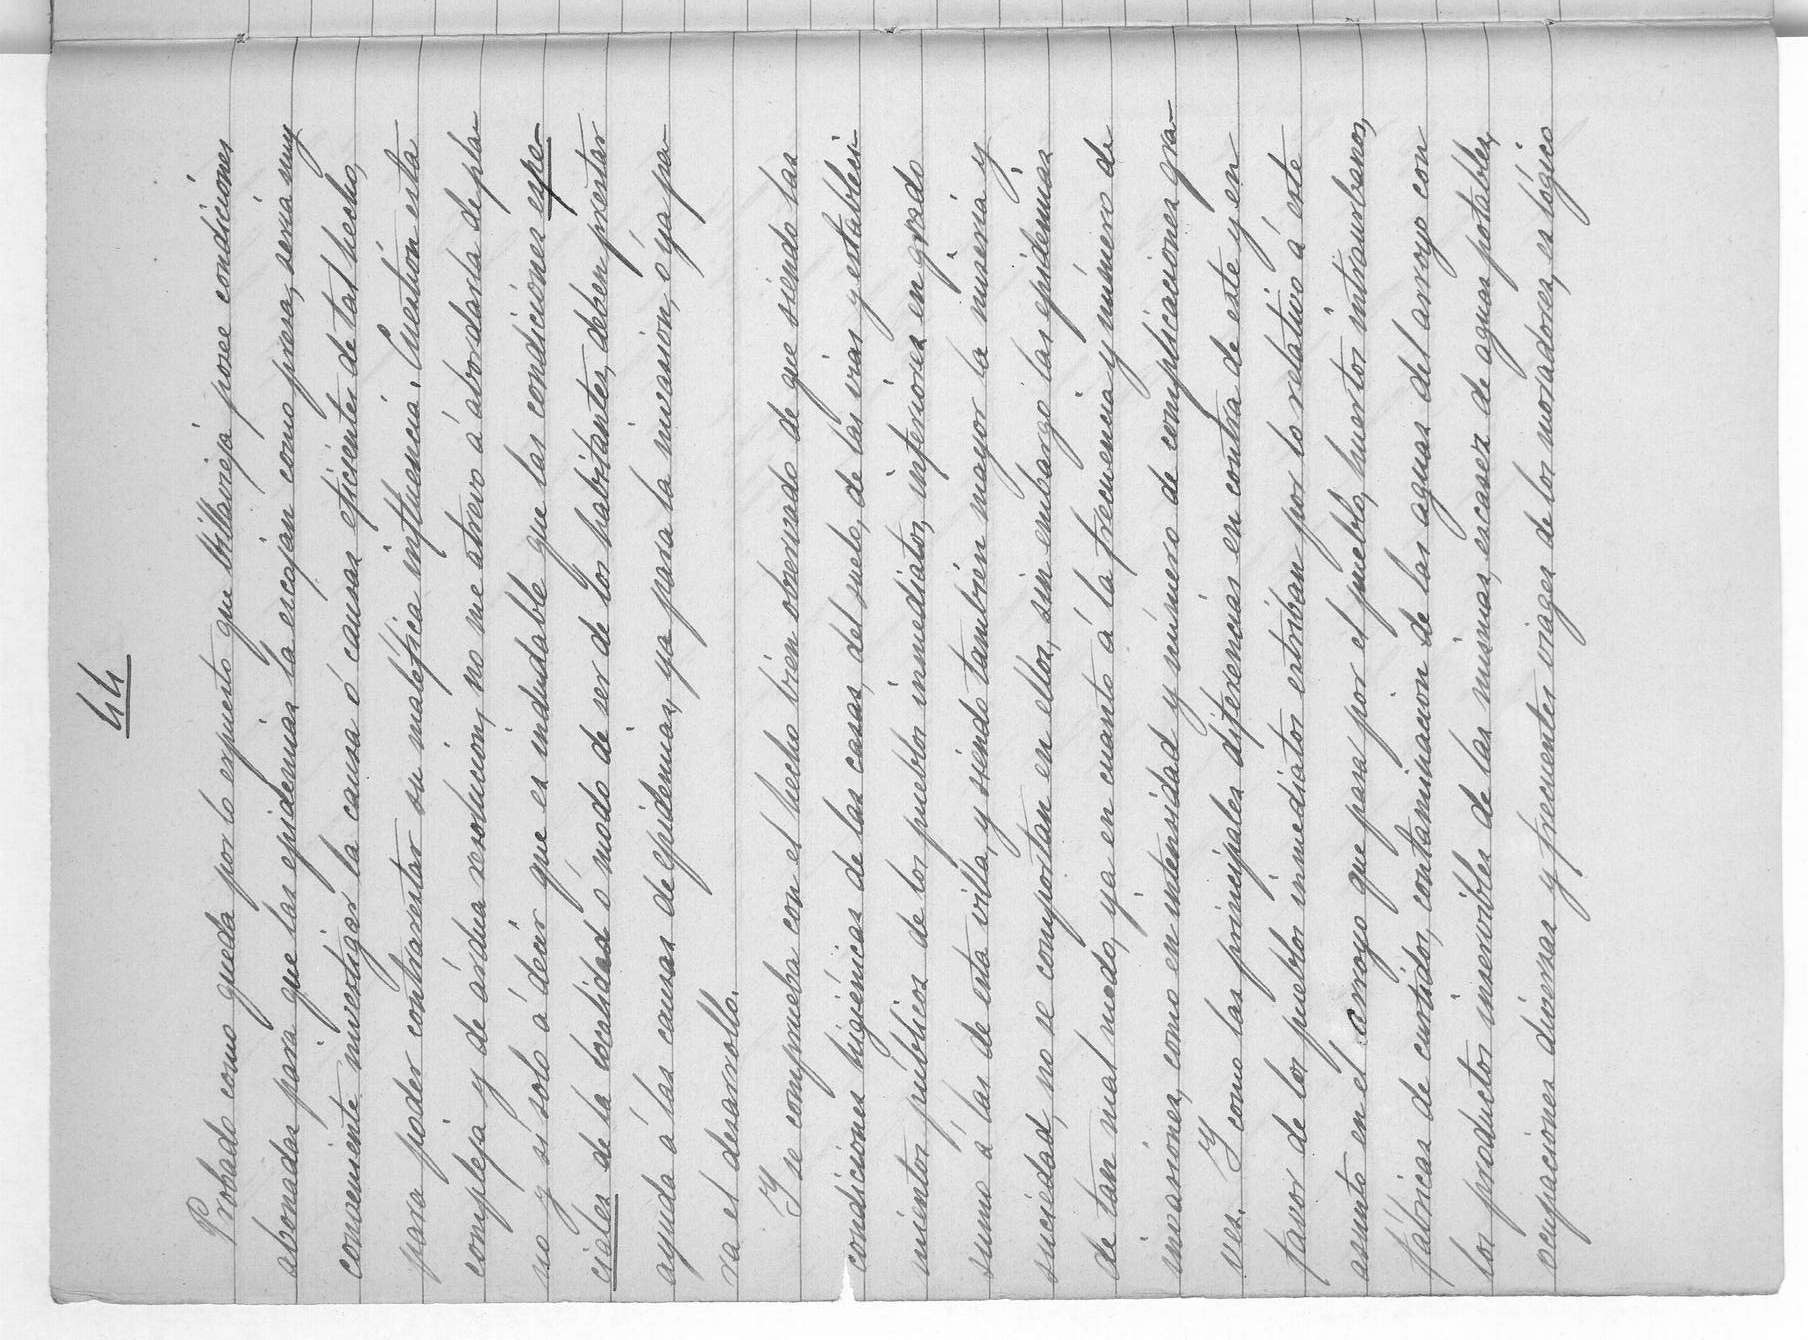 44
Probado como queda por lo expuesto que Villavieja posee condiciones
abonadas para que las epidemias la escojan como presa, seria muy
conveniente investigar la causa ó causas eficientes de tal hecho,
para poder contrarestar su maléfica influencia. Cuestión esta
compleja y de árdua resolucion, no me atrevo á abordarla de pla-
no y sí solo á decir que es indudable que las condiciones espe-
ciales de la localidad ó modo de ser de los habitantes, deben prestar
ayuda á las causas de epidemias, ya para la invasion, ó ya pa-
ra el desarrollo.
Y se comprueba con el hecho bien observado de que siendo las
condiciones higiénicas de las casas, del suelo, de las vias y estableci-
mientos públicos de los pueblos inmediatos, inferiores en grado
sumo á las de esta villa, y siendo también mayor la miseria y
suciedad, no se comportan en ellos, sin embargo las epidemias
de tan mal modo, ya en cuanto á la frecuencia y número de
invasiones, como en intensidad y número de complicaciones gra-
ves. Y como las principales diferencias en contra de este y en
favor de los pueblos inmediatos estriban por lo relativo á este
asunto en el arroyo que pasa por el pueblo, huertos intraurbanos,
fábricas de curtidos, contaminacion de las aguas del arroyo con
los productos inservibles de las mismas, escasez de aguas potables,
ocupaciones diversas y frecuentes viages de los moradores, es lógico